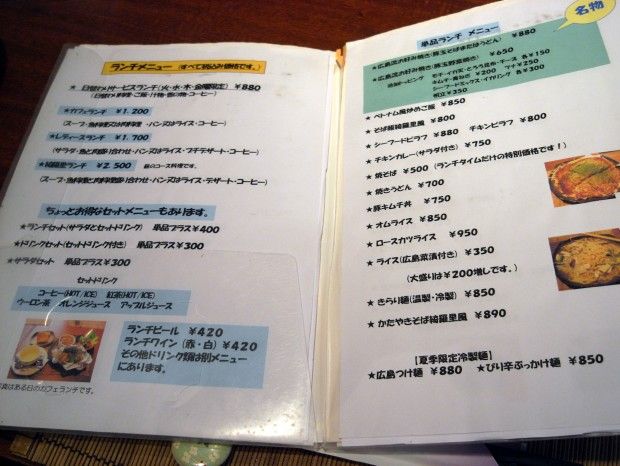 ランチメニュー (すべて税込み価格です。)
★日替わりサービスランチ(火・水・木・金曜限定) ￥880
(日替わり料理・ご飯・汁物・香の物・コーヒー)
★カフェランチ ￥1.200
(スープ・魚料理又は肉料理・パン又はライス・コーヒー)
★レディースランチ ￥1.700
(サラダ・魚と肉盛り合わせ・パン又はライス・プチデザート・コーヒー)
★綺羅里ランチ ￥2.500 昼のコース料理です。
(スープ・魚料理と肉料理盛り合わせ・パン又はライス・デザート・コーヒー)
ちょっとお得なセットメニューもあります。
★ランチセット(サラダとセットドリンク) 単品プラス￥400
★ドリンクセット(セットドリンク付き) 単品プラス￥300
★サラダセット 単品プラス￥300
セットドリンク
コーヒー(HOT/ICE) 紅茶(HOT/ICE)
ウーロン茶 オレンジジュース アップルジュース
ランチビール ￥420
ランチワイン(赤・白) ￥420
その他ドリンク類は別メニュー
にあります。
写真はある日のカフェランチです。
単品ランチ メニュー
名物
★広島流お好み焼き(豚玉そばまたはうどん) ￥880
★広島流お好み焼き(豚玉野菜焼き) ￥650
追加トッピング モチ・イカ天・とろろ昆布・チーズ 各￥150
キムチ・青ねぎ 各￥200 ツナ￥250
シーフードミックス・イカリング 各￥300
★ベトナム風炒めご飯 ￥850
★そば飯綺羅里風 ￥800
★シーフードピラフ ￥880 チキンピラフ ￥800
★チキンカレー(サラダ付き) ￥750
★焼そば ￥500(ランチタイムだけの特別価格です!)
★焼きうどん ￥700
★豚キムチ丼 ￥750
★オムライス ￥850
★ロースカツライス ￥950
★ライス(広島菜漬付き) ￥350
(大盛りは￥200増しです。)
★きらり麺(温製・冷製) ￥850
★かたやきそば綺羅里風 ￥890
【夏季限定冷製麺】
★広島つけ麺 ￥880 ★ぴり辛ぶっかけ麺 ￥850